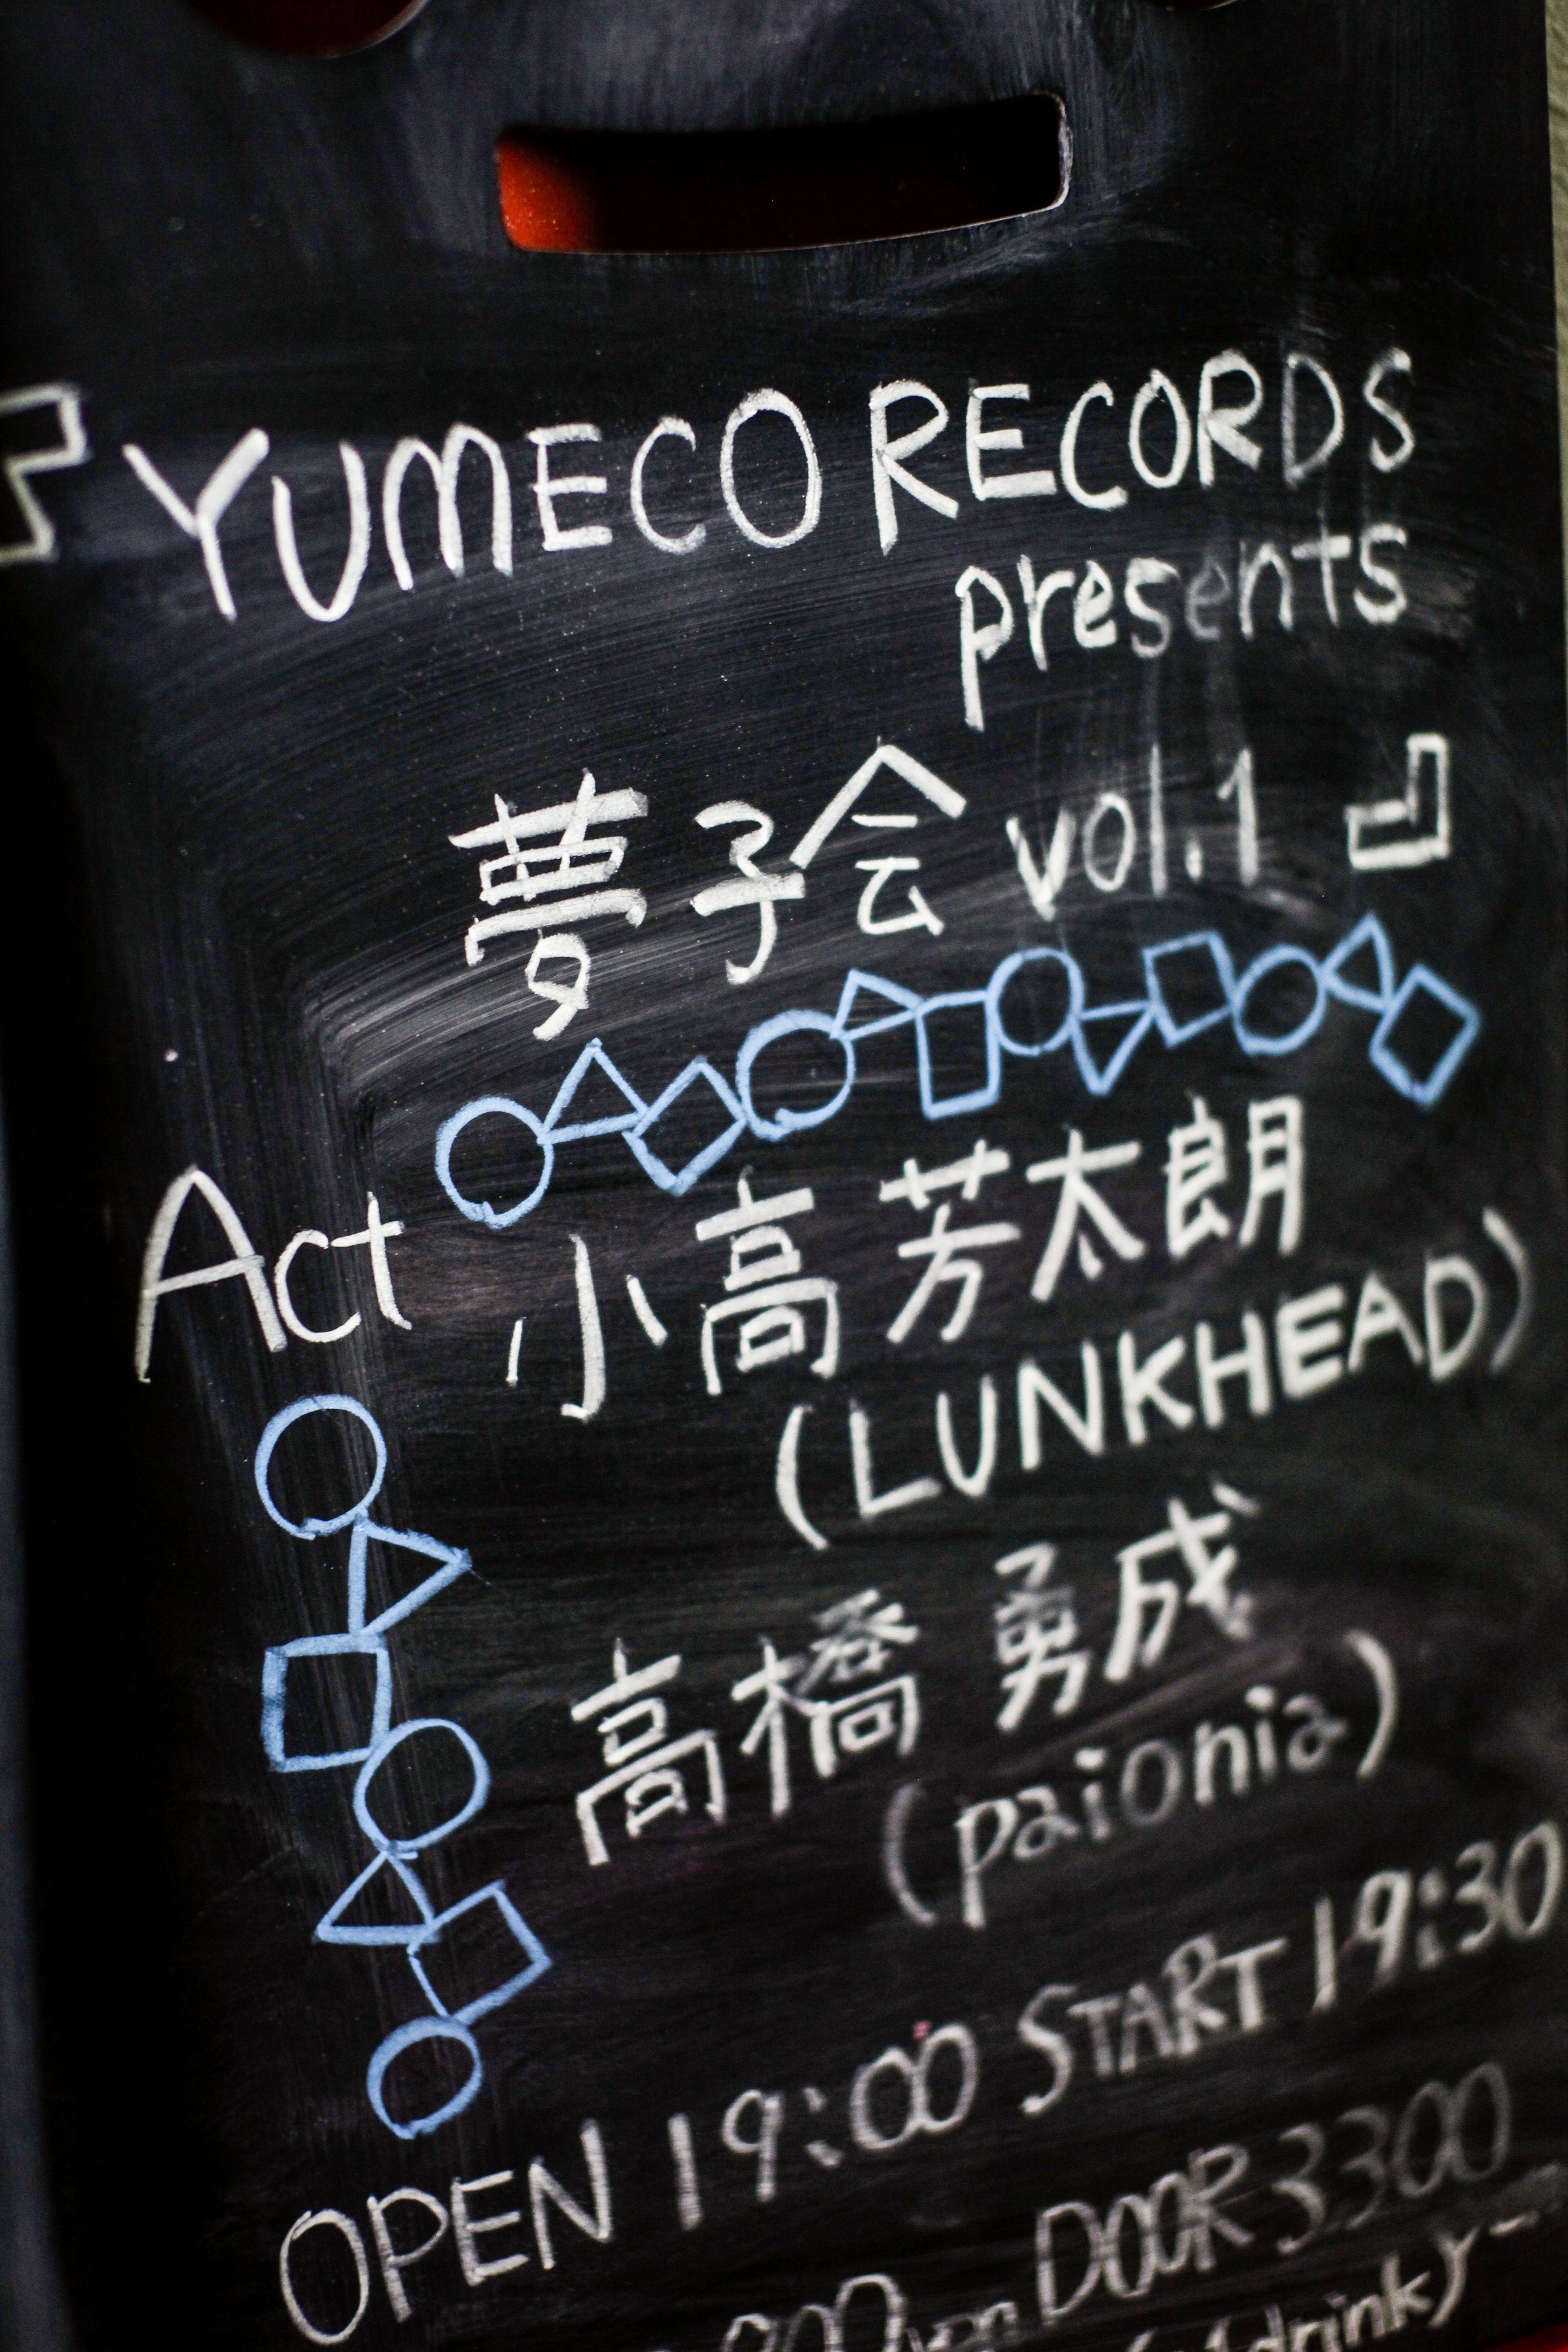 『YUMECO RECORDS
presents
夢子会 vol.1』
Act 小高芳太朗
(LUNKHEAD)
高橋 勇成
(paionia)
OPEN 19:00 START 19:30
DOOR 3300
drink)